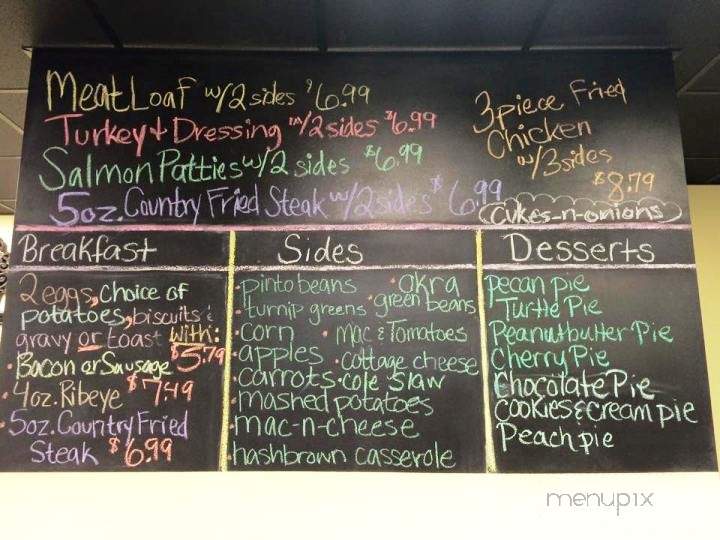 Meat Loaf w/2 sides $6.99
Turkey & Dressing w/2 sides $6.99
Salmon Patties w/2 sides $6.99
5oz. Country Fried Steak w/2 sides $6.99
3 piece Fried
Chicken
w/3 sides
$8.79
Cukes-n-onions
Breakfast
2 eggs, choice of
potatoes, biscuits &
gravy or toast with:
• Bacon or Sausage $5.79
• 4oz. Ribeye $7.49
• 5oz. Country Fried
Steak $6.99
Sides
• pinto beans • okra
• turnip greens • green beans
• corn • Mac & Tomatoes
• apples • cottage cheese
• carrots • cole slaw
• mashed potatoes
• mac-n-cheese
• hashbrown casserole
Desserts
pecan pie
Turtle Pie
Peanutbutter Pie
Cherry Pie
Chocolate Pie
cookies & cream pie
Peach pie
menupix